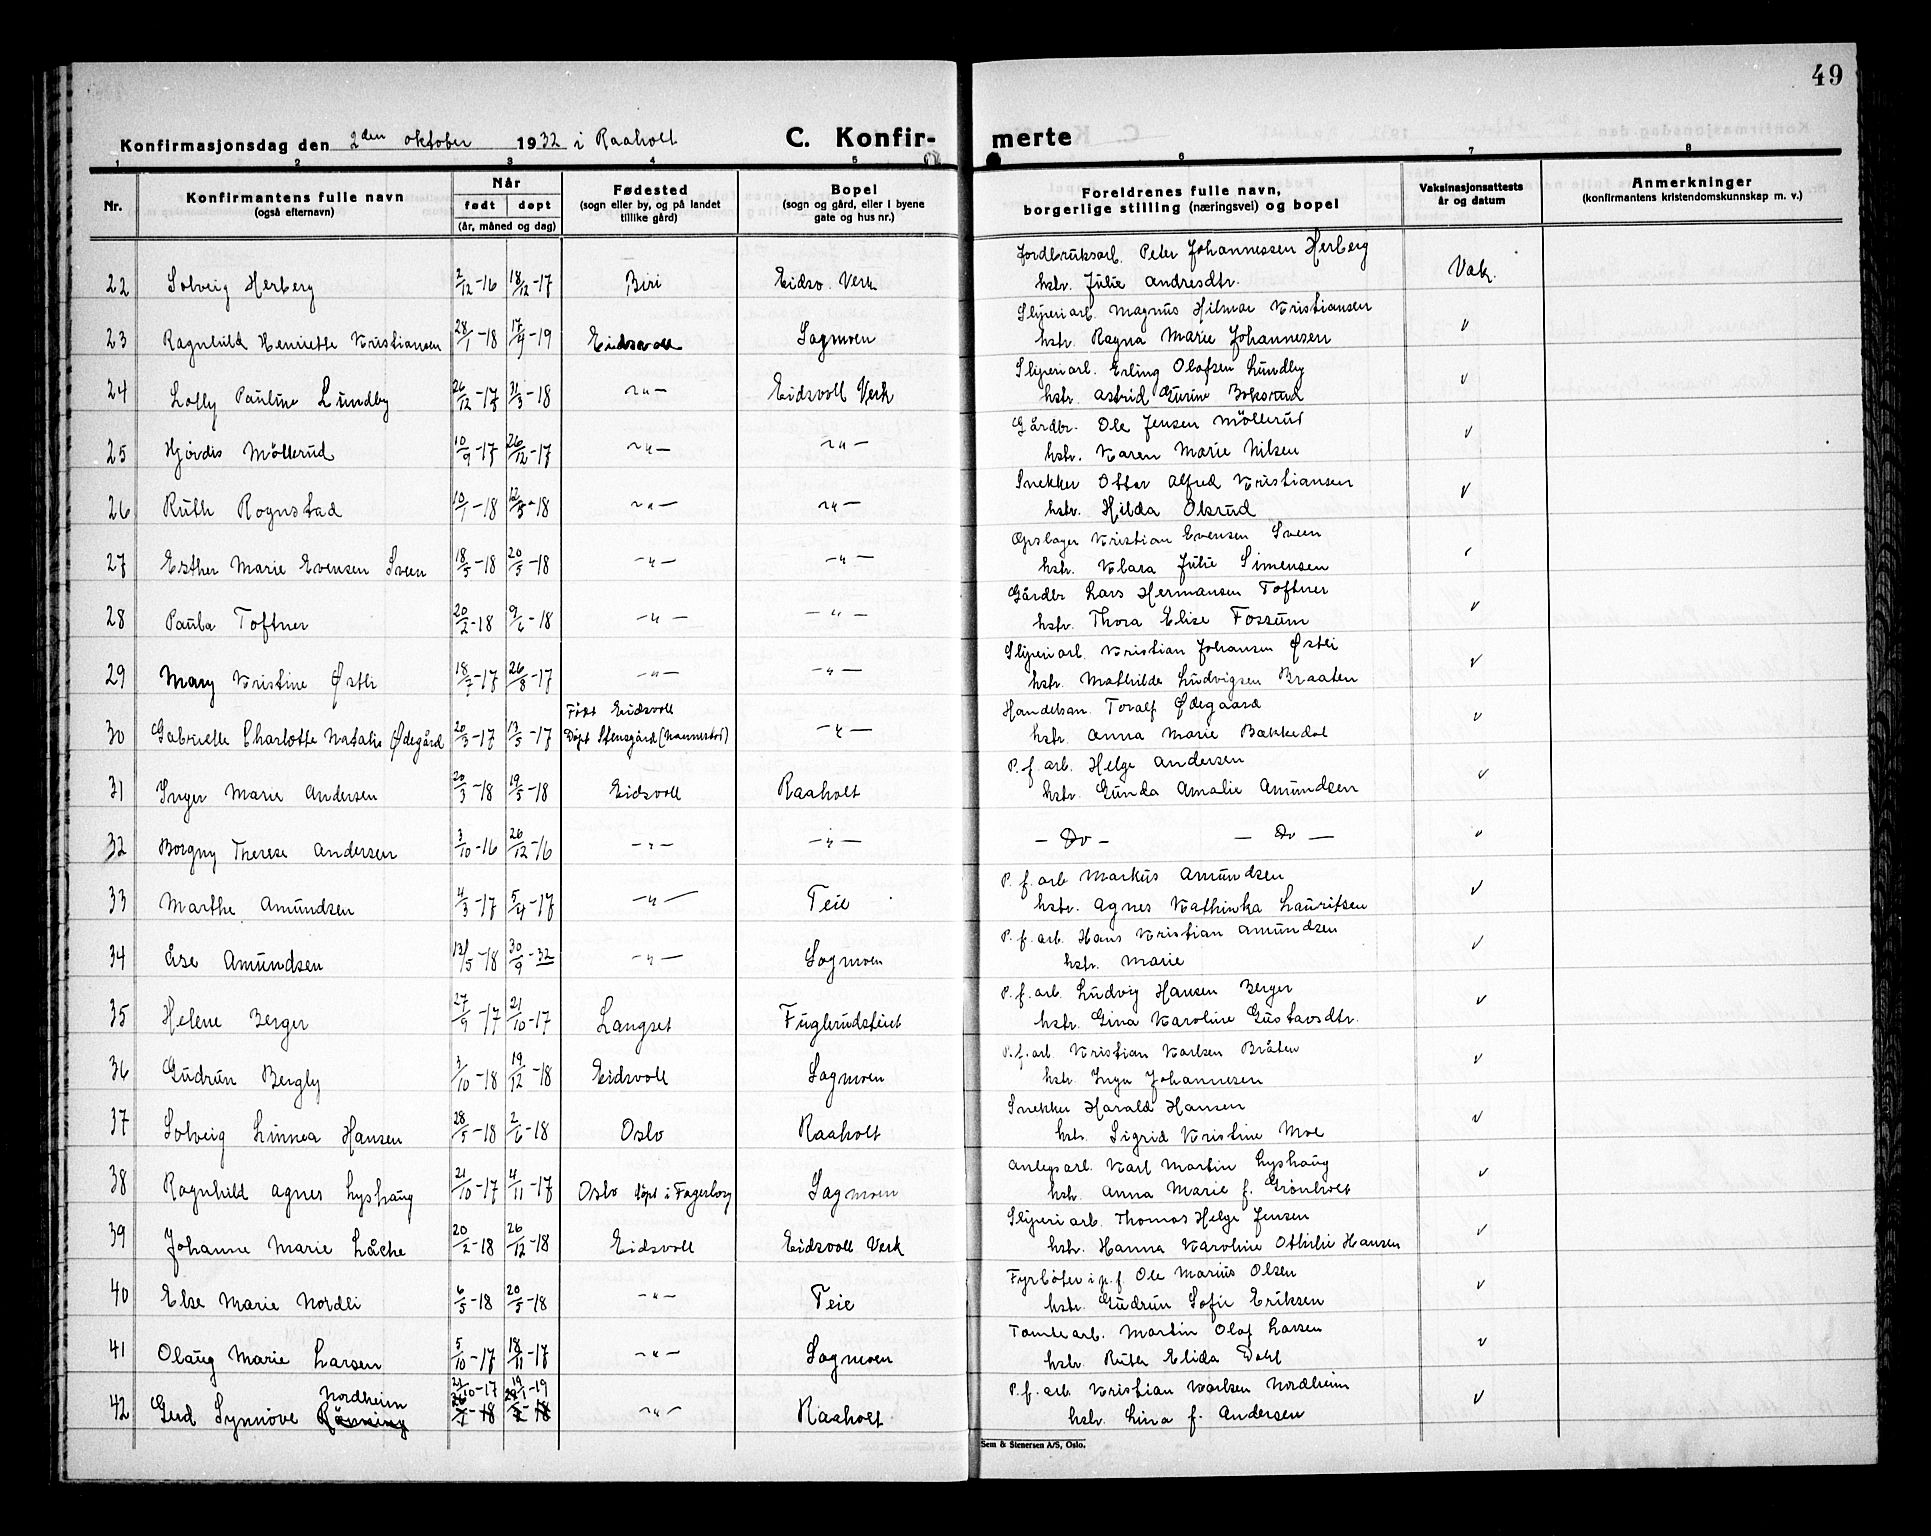 49
Konfirmasjonsdag den 2den oktober 1932 i Raaholt
C. Konfir-
merte
1 2 3 4 5 6 7 8
Nr.
Konfirmantens fulle navn
(også efternavn)
Når
født døpt
(år, måned og dag)
Fødested
(sogn eller by, og på landet
tillike gård)
Bopel
(sogn og gård, eller i byene
gate og hus nr.)
Foreldrenes fulle navn,
borgerlige stilling (næringsvei) og bopel
Vaksinasjonsattests
år og datum
Anmerkninger
(konfirmantens kristendomskunnskap m. v.)
Jordbruksarb. Peter Johannessen Herberg
22 Solveig Herberg 2/12-16 18/12-17 Biri Eidsv. Verk hstr. Julie Andresdtr. Vak.
Sliperiarb. Magnus Hilmar Kristiansen
23 Ragnhild Henriette Kristiansen 28/1-18 17/4-19 Eidsvoll Sagmoen hstr. Ragna Marie Johannesen v
Sliperiarb. Erling Olafsen Lundby
24 Lolly Pauline Lundby 26/12-17 31/3-18 -"- Eidsvoll Verk hstr. Astrid Gurine Boksrud v
Gårdbr. Ole Jensen Möllerud
25 Hjördis Möllerud 10/9-17 26/12-17 -"- -"- hstr. Karen Marie Nilsen v
Snekker Ottar Alfred Kristiansen
26 Ruth Rognstad 10/1-18 12/5-18 -"- -"- hstr. Hilda Olsrud v
Opslager Kristian Evensen Sveen
27 Esther Marie Evensen Sveen 18/3-18 20/5-18 -"- -"- hstr. Klara Julie Simensen v
Gårdbr Lars Hermansen Toftner
28 Paula Toftner 20/2-18 9/6-18 -"- -"- hstr. Thora Elise Fossum v
Sliperiarb. Kristian Johansen Østli
29 Mary Kristine Østli 18/7-17 26/8-17 -"- -"- hstr. Mathilde Ludvigsen Braaten v
Født Eidsvoll Handelsm. Toralf Ødegaard
30 Gabrielle Charlotte Natalie Ødegård 20/3-17 13/5-17 Døpt Stensgård (Nannestad) -"- hstr. Anna Marie Bakkedal v
P. f. arb. Helge Andersen
31 Inger Marie Andersen 20/3-18 19/5-18 Eidsvoll Raaholt hstr. Gunda Amalie Amundsen v
32 Borgny Therese Andersen 3/10-16 26/12-16 -"- -"- - Do - - Do - v
P. f. arb Markus Amundsen
33 Marthe Amundsen 4/3-17 5/4-17 -"- Teie hstr. Agnes Kathinka Lauritsen v
P. f. arb. Hans Kristian Amundsen
34 Else Amundsen 12/5-18 30/9-32 -"- Sagmoen hstr. Marie v
P. f. arb. Ludvig Hansen Berger
35 Helene Berger 27/9-17 21/10-17 Langset Fuglerudsteiet hstr. Gina Karoline Gustavsdtr. v
P. f. arb Kristian Karlsen Bråten
36 Gudrun Bergly 3/10-18 19/12-18 Eidsvoll Sagmoen hstr. Inga Johannesen v
Snekker Harald Hansen
37 Solveig Linnea Hansen 28/5-18 2/6-18 Oslo Raaholt hstr. Sigrid Kristine Moe v
Anlegsarb. Karl Martin Lyshaug
38 Ragnhild Agnes Lyshaug 21/10-17 4/11-17 Oslo døpt i Fagerborg Sagmoen hstr. Anna Marie f. Grönlvolt v
Sliperiarb. Thomas Helge Jensen
39 Johanne Marie Låche 20/2-18 26/12-18 Eidsvoll Eidsvoll Verk hstr. Hanna Karoline Othilie Hansen v
Fyrböter i p. f. Ole Marius Olsen
40 Else Marie Nordli 6/5-18 20/5-18 -"- Teie hstr. Gudrun Sofie Eriksen v
Tomtearb. Martin Olaf Larsen
41 Olaug Marie Larsen 5/10-17 18/11-17 -"- Sagmoen hstr Ruth Elida Dahl v
Nordheim 21/10-17 19/1-19 P. f. arb. Kristian Karlsen Nordheim
42 Gerd Synnöve Rönning -"- Raaholt hstr. Lina f. Andersen v
Sem & Stenersen A/S, Oslo.